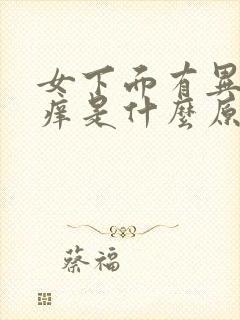 女下面有異
痒是什麼原
蔡福